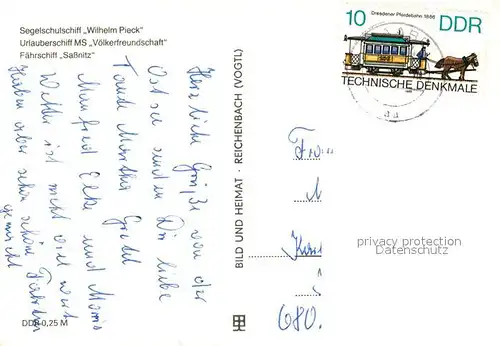 Segelschulschiff „Wilhelm Pieck"
Urlauberschiff MS „Völkerfreundschaft"
Fährschiff „Saßnitz"
Herzliche Grüße von der
Ostsee senden Dir liebe
Tante Martha Gretel
Manfred Elke und Mario
Wetter ist nicht viel wert
Haben aber schon schöne Fahrten
gemacht
DDR 0,25 M
BILD UND HEIMAT · REICHENBACH (VOGTL)
Dresdener Pferdebahn 1886
10 DDR
TECHNISCHE DENKMALE
privacy protection
Datenschutz
680